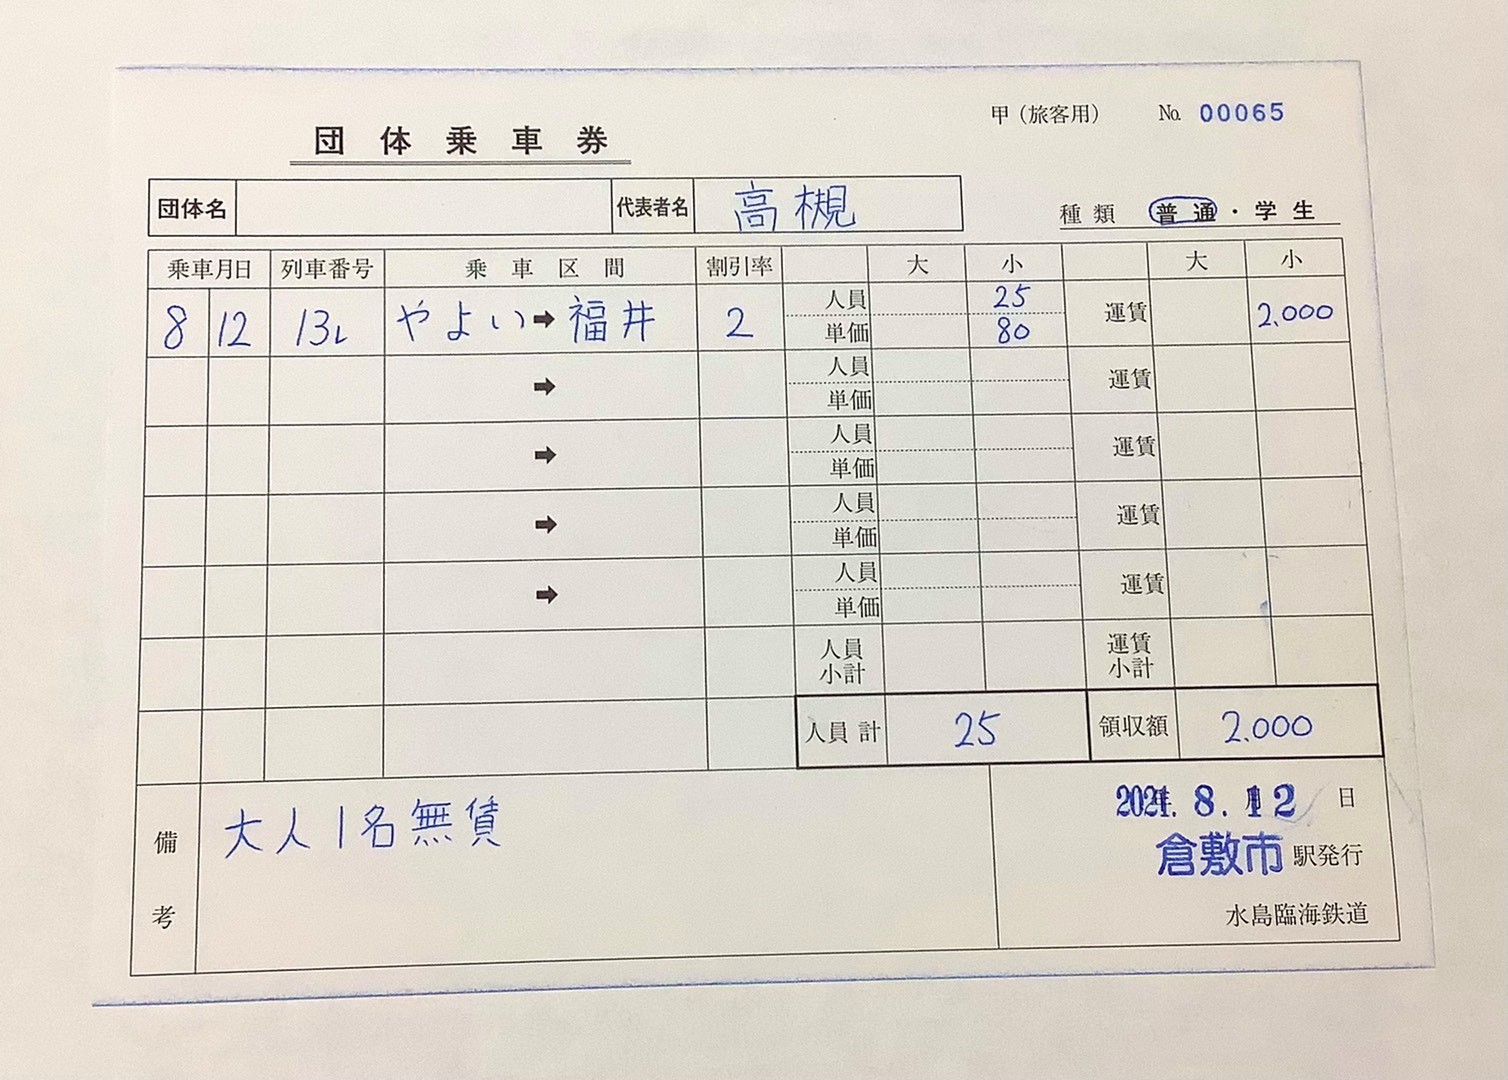 甲（旅客用） No. 00065
団体乗車券
団体名 代表者名 高槻
種類 普通・学生
乗車月日 列車番号 乗車区間 割引率 大 小 大 小
8 12 13L やよい➡福井 2 人員 25 運賃 2,000
単価 80
➡ 人員 運賃
単価
➡ 人員 運賃
単価
➡ 人員 運賃
単価
➡ 人員 運賃
単価
人員小計 運賃小計
人員計 25 領収額 2,000
備考 大人1名無賃
2021. 8. 12 日
倉敷市 駅発行
水島臨海鉄道